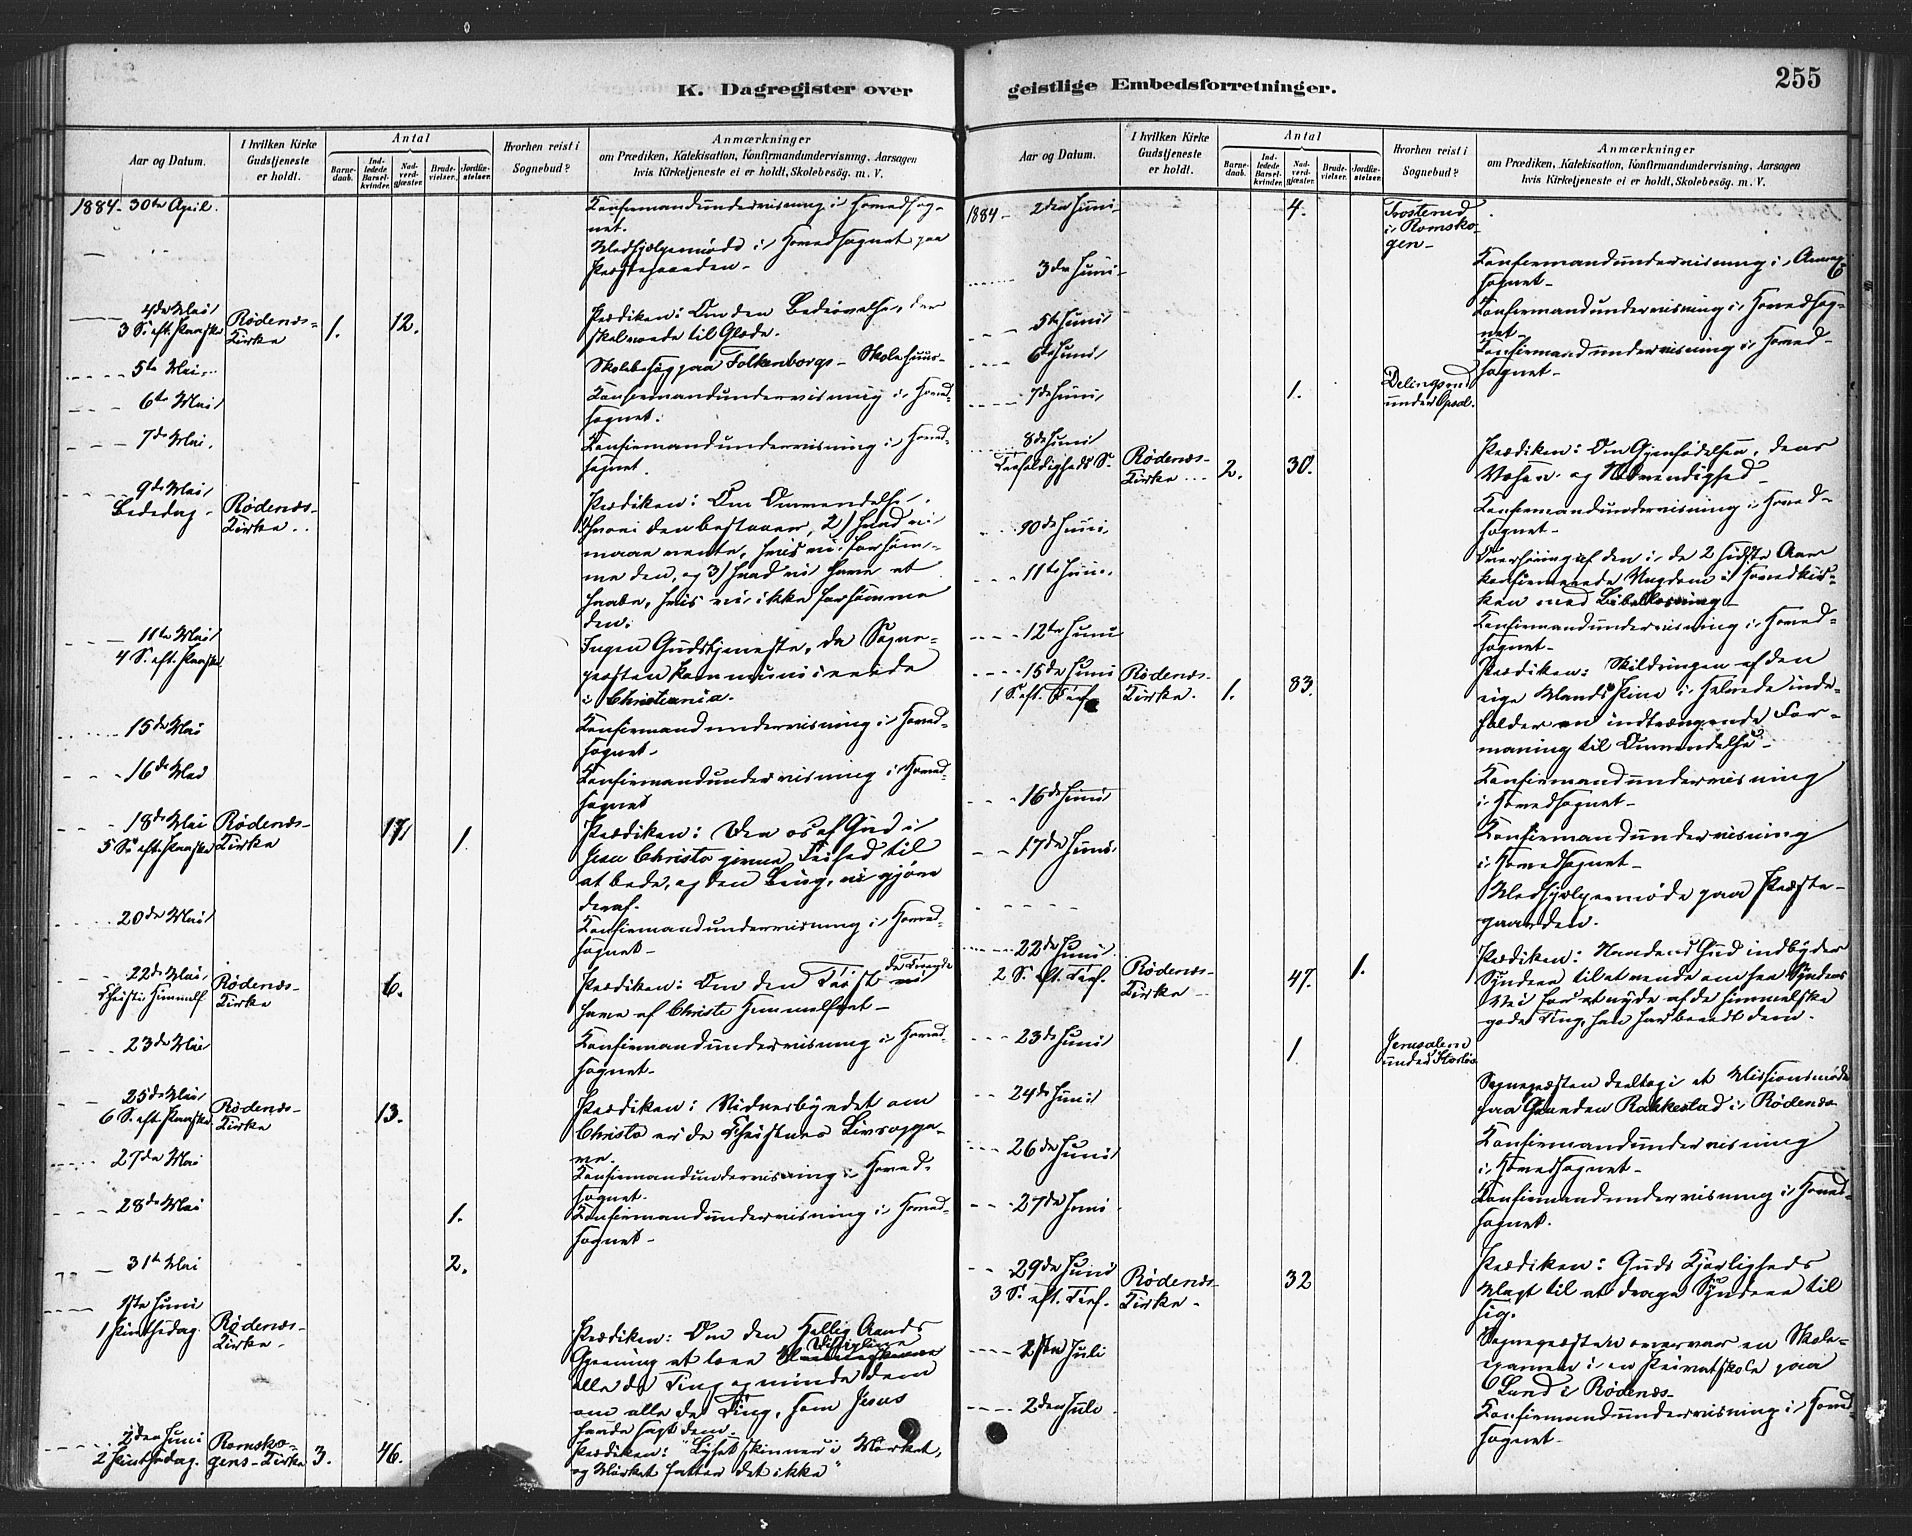 K. Dagregister over
Aar og Datum.
I hvilken Kirke
Gudstjeneste
er holdt.
Antal
Barne-
daab.
Ind-
ledede
Barsel-
kvinder.
Nad-
verd-
gjæster.
Brude-
vielser.
Jordfæ-
stelser.
Hvorhen reist i
Sognebud?
Anmærkninger
om Prædiken, Katekisation, Konfirmandundervisning, Aarsagen
hvis Kirketjeneste ei er holdt, Skolebesøg. m. V.
1884 - 30te April.
Konfirmandundervisning i Hovedsog-
net.
Medhjælpermøde i Hovedsognet paa
Præstegaarden -
4de Mai
3 S. eft. Paaske Rødenæs- 1. 12. Prædiken: Om den Bedrøvelse, der
Kirke skal vorde til Glæde.
5te Mai. Skolebesøg paa Folkenborgs - Skolehuus -
6te Mai Konfirmandundervisning i Hoved-
sognet.
7de Mai. Konfirmandundervisning i Hoved-
sognet.
9de Mai
Bededag - Rødenæs- Prædiken: Om Omvendelse,
Kirke .. hvori den bestaaer, 2) hvad vi
maae vente, hvis vi forsøm-
me den, og 3) hvad vi have at
haabe, hvis vi ikke forsømme
den.
11te Mai
4 S. eft. Paaske Ingen Gudstjeneste, da Sogne-
præsten kommunicerede
i Christiania.
15de Mai Konfirmandundervisning i Hoved-
sognet -
16de Mai Konfirmandundervisning i Hoved-
sognet
18de Mai Rødenæs- 17 1 Prædiken: Den os af Gud i
5 S. eft. Paaske Kirke Jesu Christo givne Frihed til
at bede, og den Brug, vi gjøre
deraf.
20de Mai Konfirmandundervisning i Hoved-
sognet -
22de Mai Rødenæs- 6. Prædiken: Om den Trøst
Christi Himmelf Kirke have af Christi Himmelfart -
23de Mai Konfirmandundervisning i Hoved-
sognet -
25de Mai Rødenæs- 13. Prædiken: Vidnesbyrdet om
6 S. eft. Paaske Kirke Christo er de Christnes Livsopga-
ve.
27de Mai Konfirmandundervisning i Hoved-
sognet.
28de Mai 1. Konfirmandundervisning i Hoved-
sognet -
31te Mai 2.
1ste Juni
1 Pintsedag. Rødenæs- Prædiken: Om den Hellig Aands
Kirke - Gjerning at lære Disciplene
alle de Ting og minde dem
om alle de Ting, som Jesus
havde sagt dem.
2den Juni Romsko- 3. 46. Prædiken: "Lyset skinner i Mørket,
2 Pintsedag. gens-Kirke og Mørket fatter det ikke"
geistlige Embedsforretninger.
255
Aar og Datum.
I hvilken Kirke
Gudstjeneste
er holdt.
Antal
Barne-
daab.
Ind-
ledede
Barsel-
kvinder.
Nad-
verd-
gjæster.
Brude-
vielser.
Jordfæ-
stelser.
Hvorhen reist i
Sognebud?
Anmærkninger
om Prædiken, Katekisation, Konfirmandundervisning, Aarsagen
hvis Kirketjeneste ei er holdt, Skolebesøg. m. V.
1884 - 2den Juni - 4. Trosterud
i Romsko-
gen -
3de Juni - Konfirmandundervisning i Annex-
sognet -
5te Juni Konfirmandundervisning i Hovedsog-
net -
6te Juni Konfirmandundervisning i Hoved-
sognet -
7de Juni 1.
under Opsal.
8de Juni
Trefoldigheds S. Rødenæs- 2. 30. Prædiken: Om Gjenfødelsen, dens
Kirke ... Væsen og Nødvendighed -
10de Juni Konfirmandundervisning i Hoved-
sognet -
11te Juni. Overhøring af den i de 2 sidste Aar
konfirmerede Ungdom i Hovedkir-
ken med Bibellæsning -
12te Juni Konfirmandundervisning i Hoved-
sognet -
15de Juni Rødenæs- 1. 83. Prædiken: Skildringen af den
1 S. eft. Tref. Kirke. rige Mands Pine i Helvede inde-
holder en indtrængende For-
maning til Omvendelse -
16de Juni Konfirmandundervisning
i Hovedsognet -
17de Juni Konfirmandundervisning
i Hovedsognet -
Medhjælpermøde paa Præste-
gaarden.
22de Juni Rødenæs- 47. 1. Prædiken: Naadens Gud indbyder
2 S. eft. Tref. Kirke - Syndere til at vende om fra Syndens
Vei for at nyde af de himmelske
gode Ting, han har beredt dem.
23de Juni 1 Jerusalem
under
24de Juni Sognepræsten deeltog i et Missionsmøde
paa Gaarden Rakkestad i Rødenæs
26de Juni Konfirmandundervisning
i Hovedsognet -
27de Juni Konfirmandundervisning i Hoved-
sognet.
29de Juni Rødenæs- 32 Prædiken: Guds Kjærligheds
3 S. eft. Tref. Kirke - Magt til at drage Syndere til
sig.
1ste Juli Sognepræsten overvar en Skole-
examen i en Privatskole paa
Lund i Rødenæs -
2den Juli Konfirmandundervisning i Hoved-
sognet -